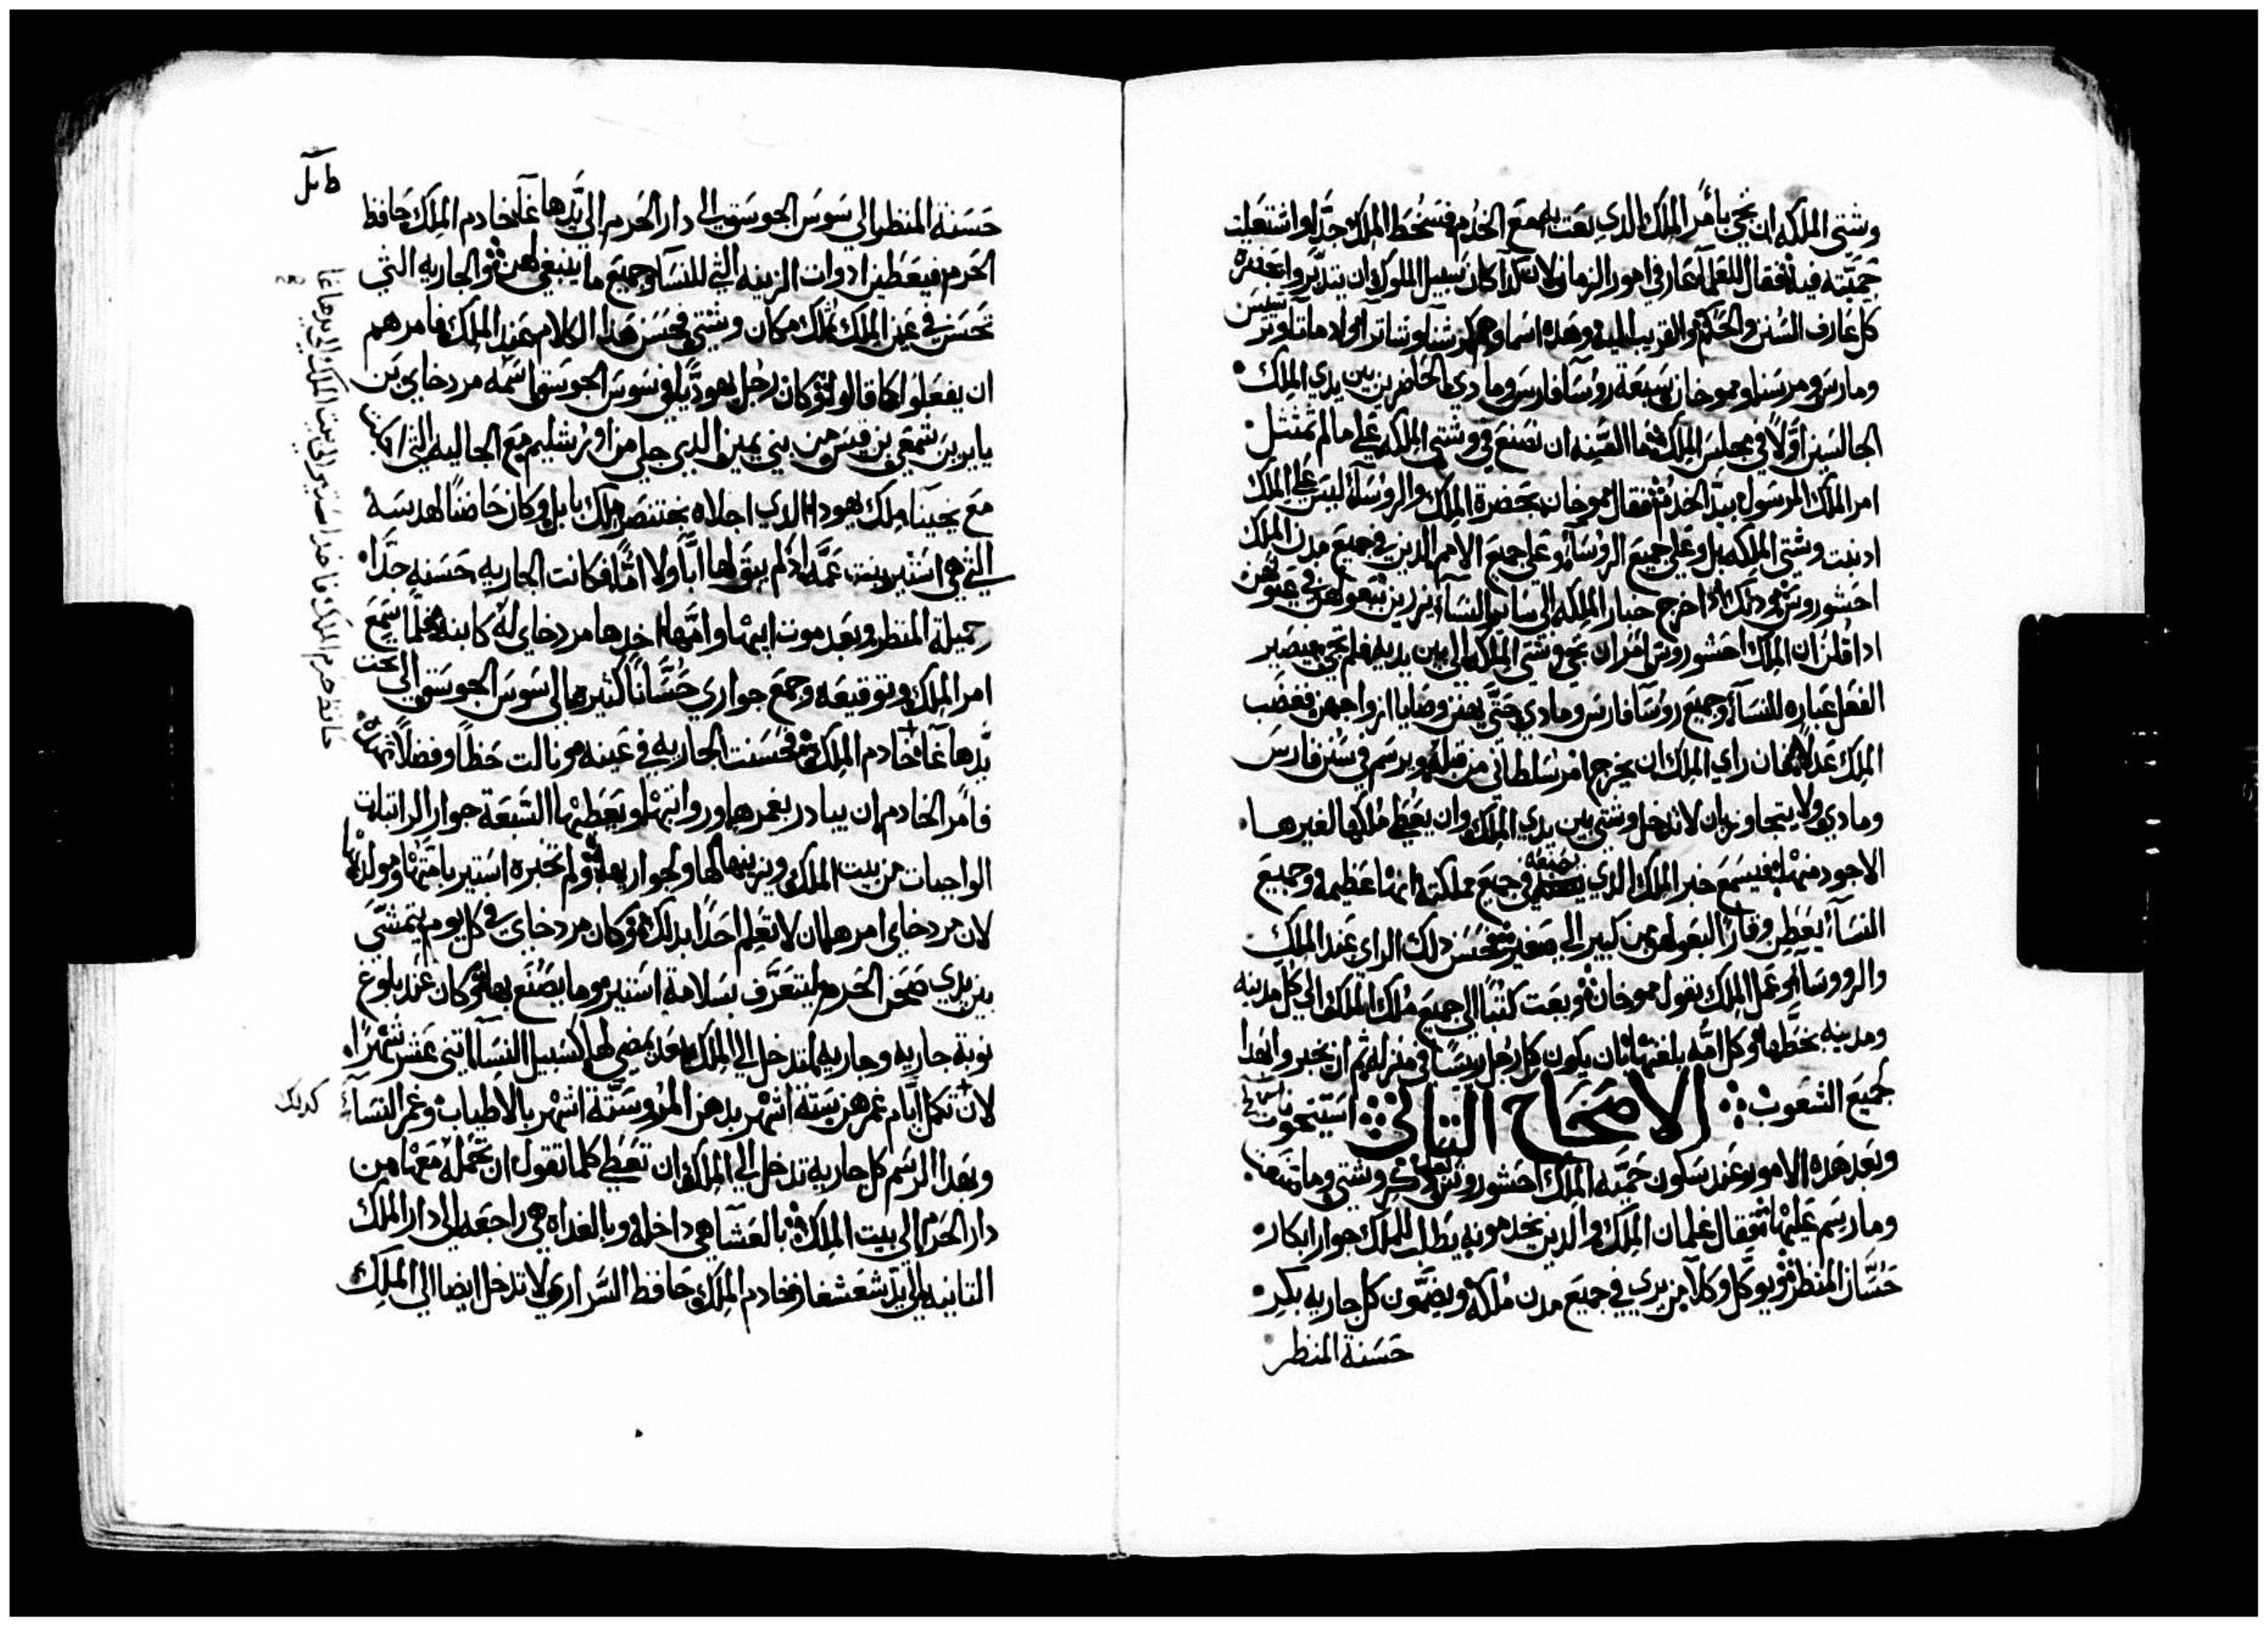 وشتي الملكه ان تجي بامر الملك الدي بعت به مع الخدم فسخط الملك جدا واشتعلت
حميته فيه فقال للعلما عارفي امور الزمان لان كدا كان سبيل الملوك ان يتدبروا بحضرة
كل عارف السنن والحكم والقريب اليه وهده اسماوهم كرشنا وشاتر وادماتا وترشيش
ومارس ومرسنا ومموخان سبعة روسا فارس ومادي الحاضرين بين يدي الملك
الجالسين اولا في مجلس الملك ما السنه ان نصنع في وشتي الملكه على ما لم تمتثل
امر الملك المرسول بيد الخدم فقال مموخان بحضرة الملك والروسا ليس على الملك
ادنبت وشتي الملكه بل وعلى جميع الروسا وعلى جميع الامم الدين في جميع مدن الملك
احشوروش ودلك ادا خرج خبار الملكه الى ساير النسا يزرين ببعولهن في عيونهن
ادا قلن ان الملك احشوروش امر ان تجي وشتي الملكه الى بين يديه فلم تجي فيصير
الفعل عباره للنسا وجميع روسا فارس ومادي حتى يهنن وصايا ازواجهن فغضب
الملك عدلا فان راي الملك ان يخرج امر سلطاني من قبله ويرسم في سنن فارس
ومادي ولا يتجاوز بان لا تدخل وشتي بين يدي الملك وان يعطي ملكها لغيرها
الاجود منها فيسمع خبر الملك الدي يصنعه في جميع مملكته انها عظيمه وجميع
النسا يعطين وقارا لبعولهن من كبير الى صغير فحسن دلك الراي عند الملك
والرووسا وعمل الملك بقول مموخان وبعت كتبا الى جميع ملك الملك الى كل مدينه
ومدينه بخطها وكل امه بلغتها بان يكون كل رجل ريسا في منزله ثم ان يخبروا بهدا
جميع الشعوب الاصحاح التاني استيحوت
وبعد هده الامور عند سكون حمية الملك احشوروش دكر وشتي وما صنعت
وما رسم عليها فقال غلمان الملك والدين يخدمونه يطلب للملك جوار ابكار
حسان المنظر ويوكل وكلا من يري في جميع مدن ملكه ويضمون كل جاريه بكر
حسنة المنظر
حسنة المنظر الى سوس الجوسق الى دار الحرم الى يد هاغا خادم الملك حافظ
الحرم فيعطين ادوات الزينه التي للنسا وجميع ما ينبغي لهن والجاريه التي
تحسن في عين الملك تملك مكان وشتي فحسن هدا الكلام عند الملك فامرهم
ان يفعلوا كما قالوا وكان رجل يهوديا في سوس الجوسق اسمه مردخاي بن
يابر بن شمعي بن قيس من بني يمين الدي جلي من اورشليم مع الجاليه التي اجليت
مع يحينا ملك يهودا الدي اجلاه بختنصر ملك بابل وكان حاضنا لهدسه
التي هي استير بنت عمه اد لم يبق لها ابا ولا اما فكانت الجاريه حسنه جدا
جميلة المنظر وبعد موت ابيها وامها اخدها مردخاي له كابنه فلما سمع
امر الملك وتوقيعه وجمع جواري حسانا كثيره الى سوس الجوسق الى تحت
يد هاغا خادم الملك فحسنت الجاريه في عينه ونالت حظا وفضلا
فامر الخادم ان يبادر بغمرها ورواتبها ويعطيها السبعة جوار الراتبات
الواجبات من بيت الملك وزينها لها ولجواريها ولم تخبره استير بامتها ومولدها
لان مردخاي امرها ان لا تعلم احدا بدلك وكان مردخاي في كل يوم يتمشي
بين يدي صحن الحرم ليتعرف بسلامة استير وما يصنع بها وكان عند بلوغ
نوبة جاريه وجاريه لتدخل الى الملك بعد يمضي لها كسبيل النسا اتني عشر شهرا
لان تكمل ايام غمرهن ستة اشهر بدهن المر وستة اشهر بالاطياب وغمر النسا
كدلك
وبهدا الرسم كل جاريه تدخل الى الملك ان تعطي كلما تقول ان تحمله معها من
دار الحرم الى بيت الملك بالعشا هي داخله وبالغداه هي راجعه الى دار الملك
التانيه الى يد شعشغاز خادم الملك حافظ السراري لا تدخل ايضا الى الملك